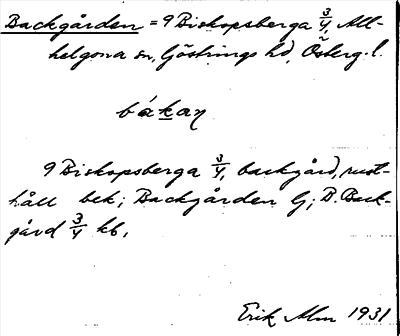 Backgården = 9 Biskopsberga 3/4, All-
helgona sn, Göstrings hd, Österg. l.
bákan
9 Biskopsberga 3/4, backgård, rust-
håll bek; Backgården G; B. Back-
gård 3/4 kb.
Erik Alm 1931